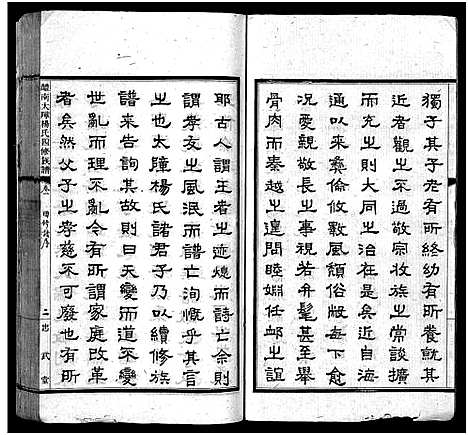 獨子其子老有所終幼有所養就其
近者觀之今將敬宗收族之常談擴
而充之治天下之道胥是矣近自海
通以來彝倫攸斁風頹俗敝每下愈
況愛親敬長之事視若弁髦甚至舉
骨肉而秦越之遑問睦婣任卹之誼
耶古人謂王者之迹熄而詩亡余則
謂孝友之風泯而譜亡洵慨乎其言
之也大障楊氏諸君子乃以續修族
譜來告詢其故則曰天變而道不變
世亂而理不亂今有所謂家庭改革
者矣然父子之孝慈不可廢也有所
醴南大障楊氏四修族譜
卷一
四修譜序
二
忠武堂